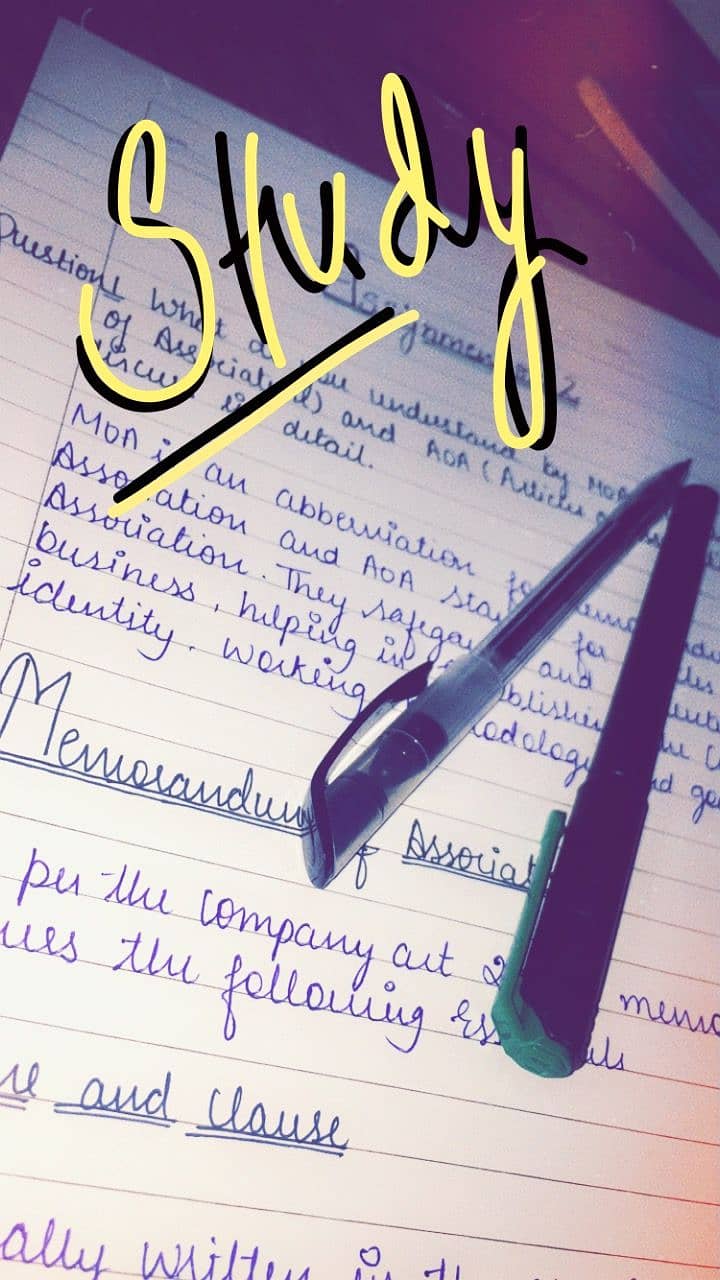 Study
Assignment 2
Question1 What do you understand by MOA
of Association) and AOA (Articles
discuss in detail.
MOA is an abberviation for
Association and AOA stands for
Association. They safeguard and
business, helping in
identity, working and
Memorandum of Associat
per the company act 2 memo
ues the following Ess als
and clause
ally written in the